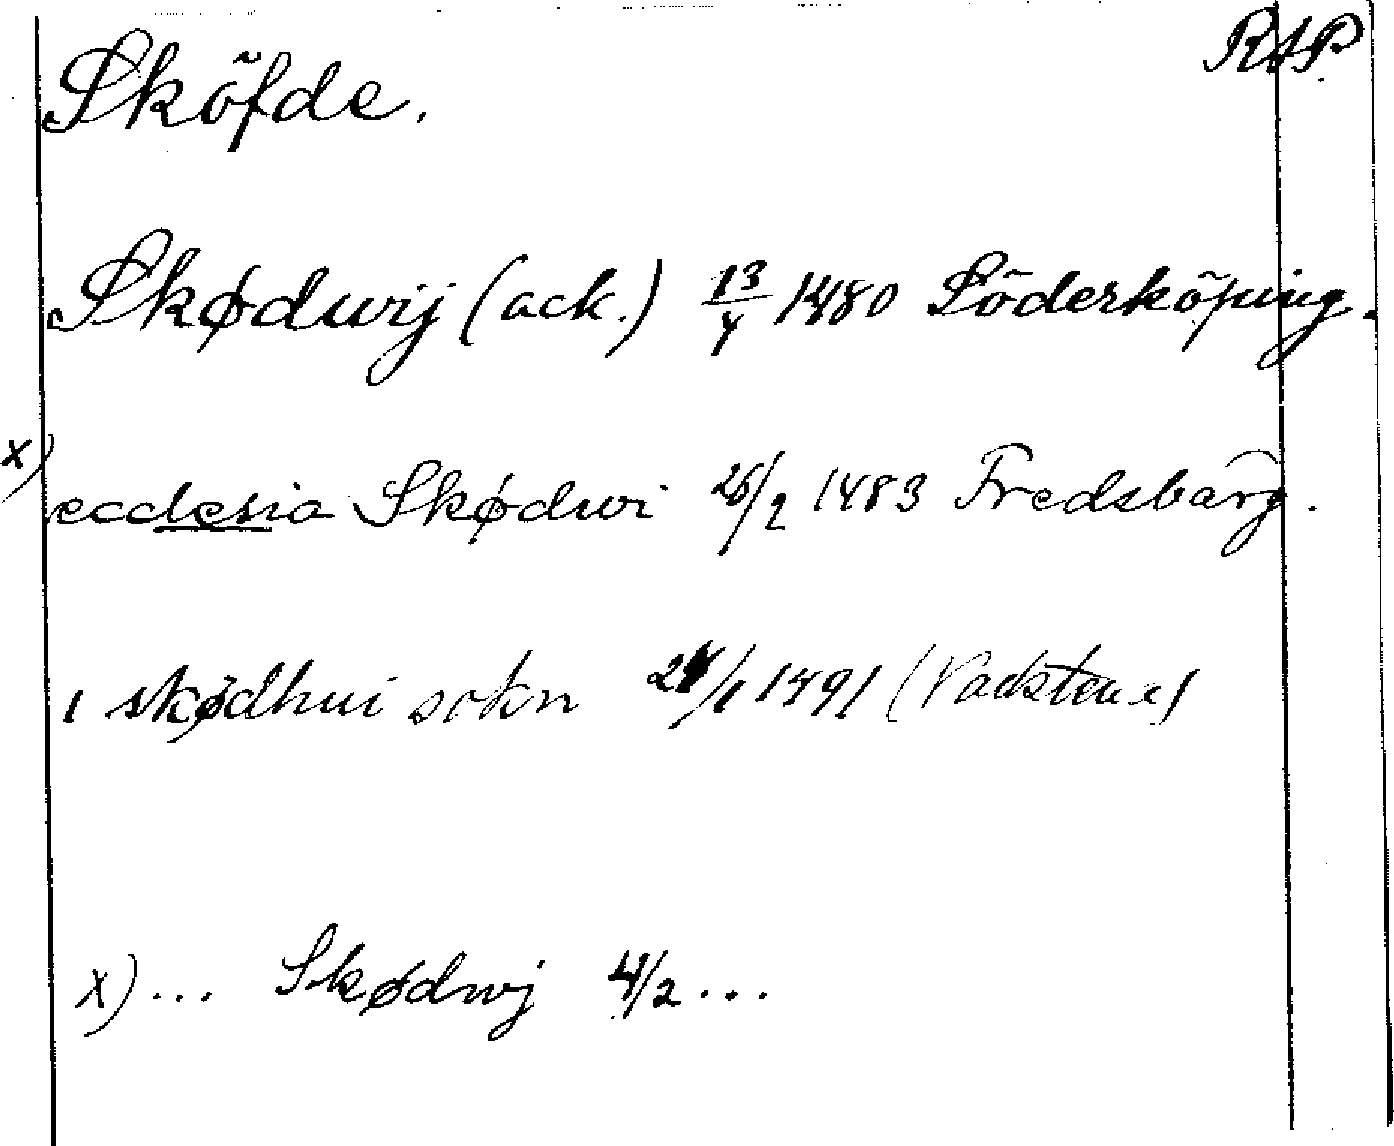 Sköfde. RAP.
Skødwij (ack.) 13/4 1480 Söderköping.
x) ecclesia Skødwi 26/2 1483 Fredsbärg.
i skødhui sokn 1491 (Vadstena)
x) ... Skødwj 4/2 ...